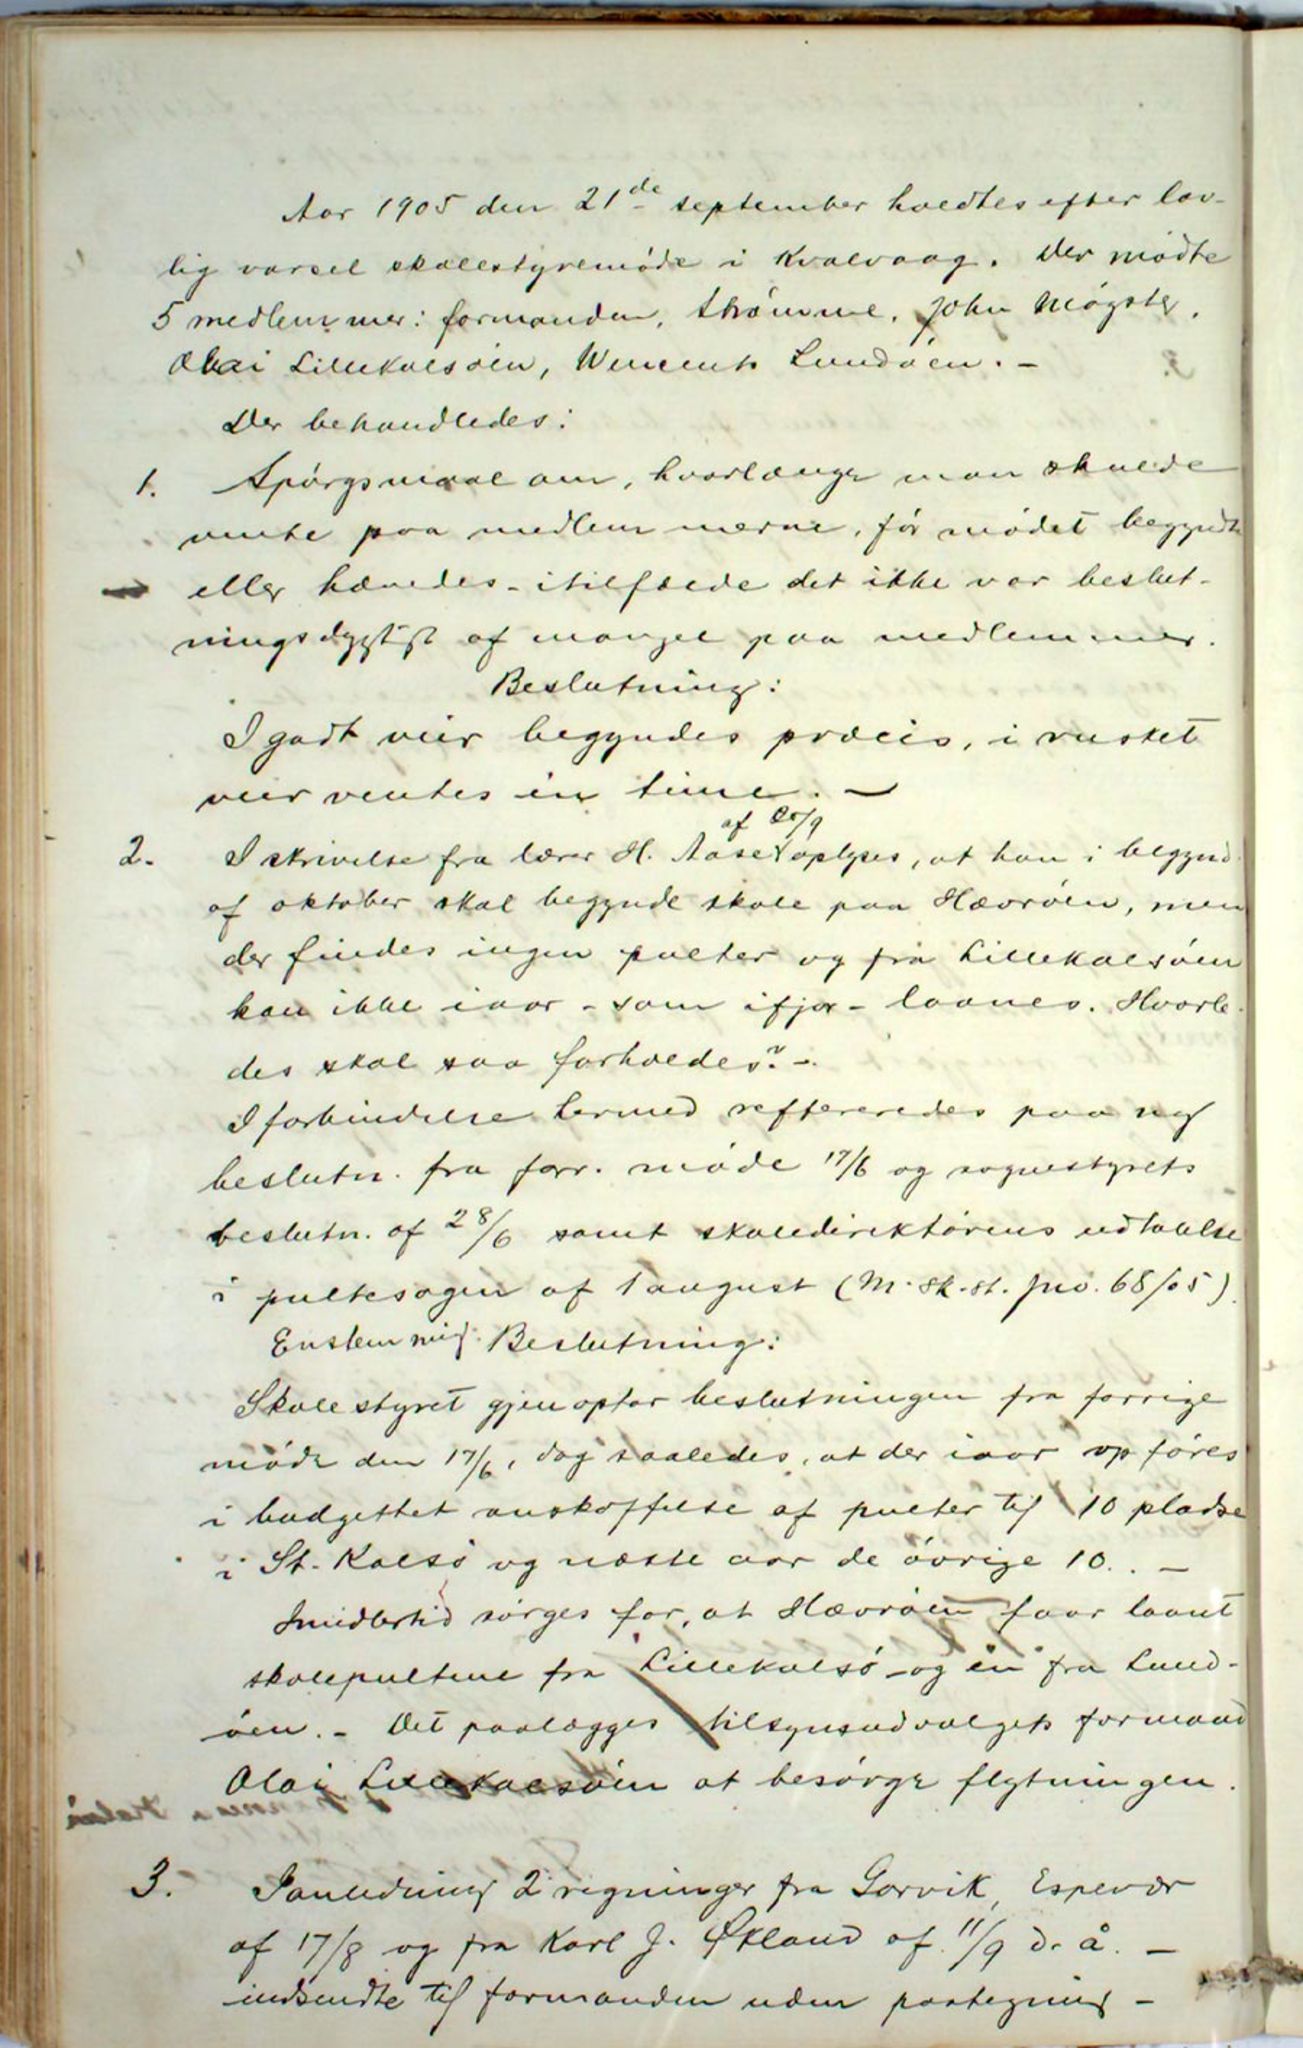 Aar 1905 den 21de september holdtes efter lov-
lig varsel skolestyremøde i Kvalvaag. Der mødte
5 medlemmer: formanden, Strømme, John Møgster,
Olai Lillekalsøen, Vincents Lundøen. -
Der behandledes:
1. Spørgsmaal om, hvorlænge man skulde
vente paa medlemmerne, før mødet begyndte
eller hævedes - itilfælde det ikke var beslut-
ningsdygtigt af mangel paa medlemmer.
Beslutning:
I godt veir begyndes præcis, i rusket
veir ventes én time. -
af 20/9
2. I skrivelse fra lærer H. Aase oplyses, at han i begynd.
af oktober skal begynde skole paa Hævrøen, men
der findes ingen pulter og fra Lillekalsøen
kan ikke iaar - som ifjor - laanes. Hvorle-
des skal saa forholdes? -
I forbindelse hermed reffereredes paa ny
beslutn. fra forr. møde 17/6 og sognestyrets
beslutn. af 28/6 samt skoledirektørens udtalelse
i pultesagen af 1 august (M. sk. st. jno. 68/05).
Enstemmig Beslutning:
Skolestyret gjenoptar beslutningen fra forrige
møde den 17/6, dog saaledes, at der iaar opføres
i budgettet anskaffelse af pulter til 10 pladse
i St. Kalsø og næste aar de øvrige 10. -
Imidlertid sørges for, at Hævrøen faar laant
skolepultene fra Lillekalsø - og én fra Lund-
øen. - Det paalægges tilsynsudvalgets formand
Olai Lillekalsøen at besørge flytningen.
3. I anledning 2 regninger fra Gorvik, Espevær
af 17/8 og fra Karl J. Økland af 11/9 d. å. -
indsendte til formanden uden paategning -